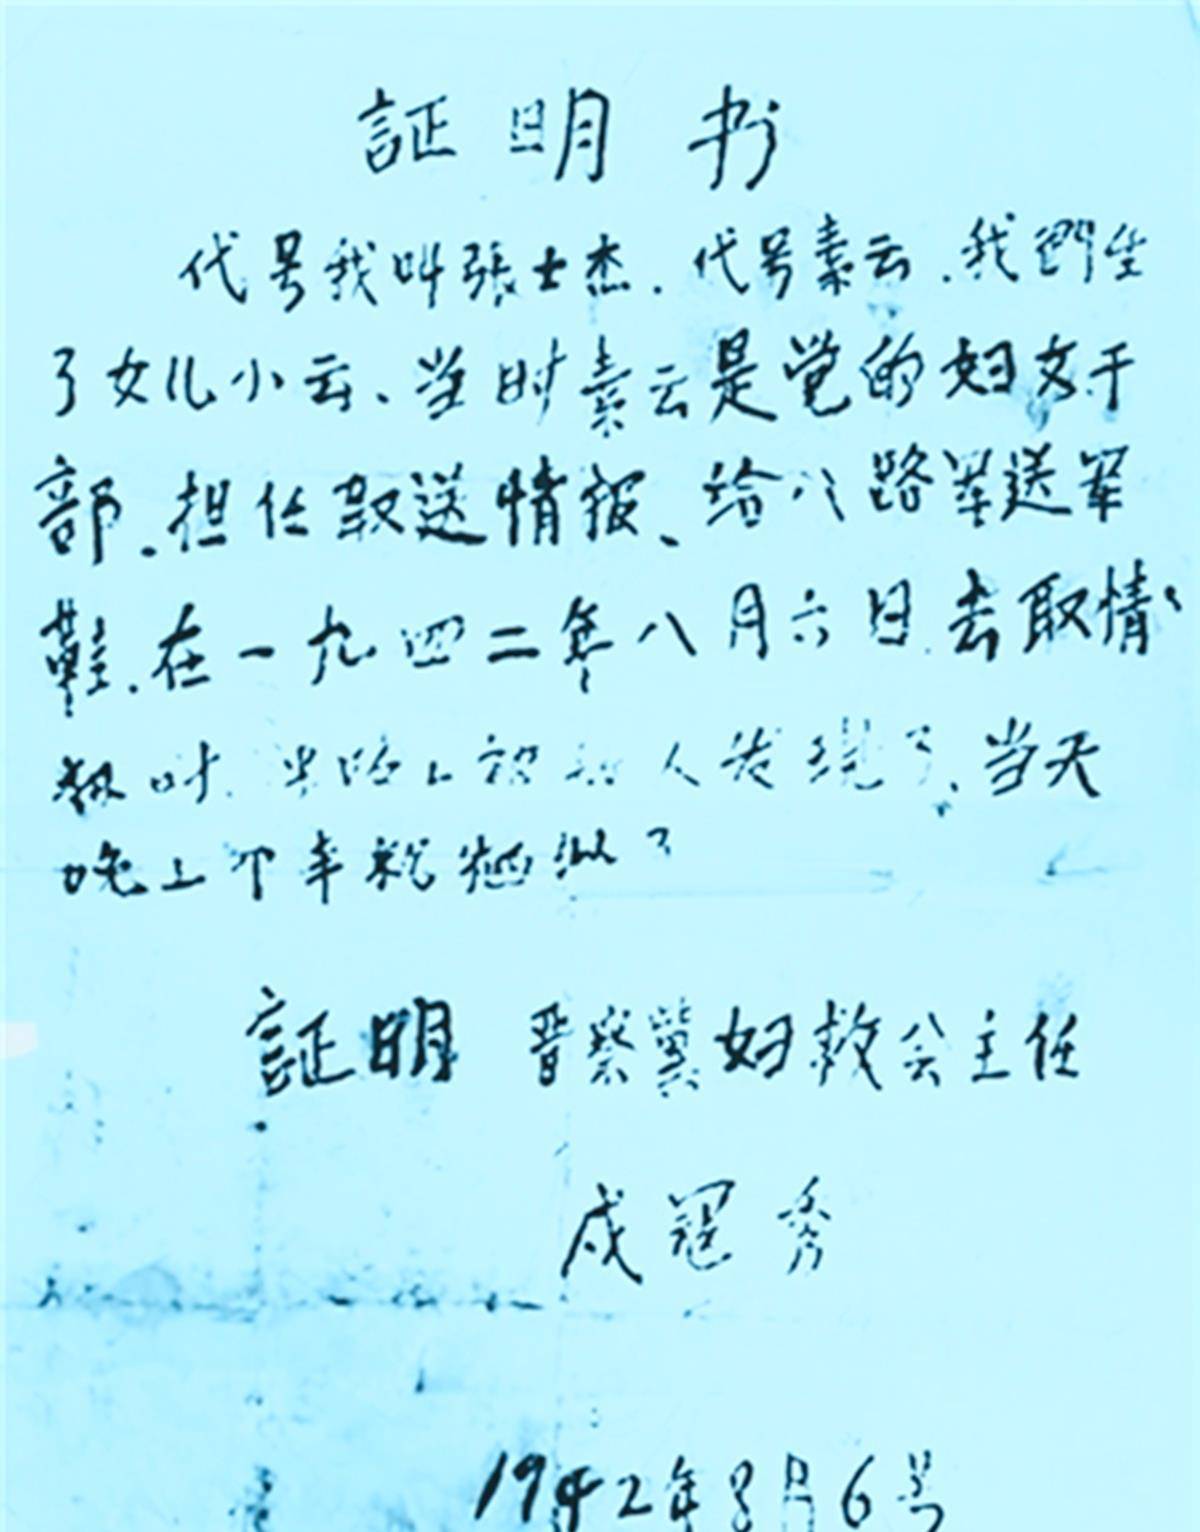 証明书
代号我叫張士杰.代号素云.我們生
了女儿小云、当时素云是党的妇女干
部.担任取送情报、给八路軍送軍
鞋.在一九四二年八月六日去取情
报时.半路上被敌人发现了、当天
晚上不幸就牺牲了
証明 晋察冀妇救会主任
戎冠秀
1942年8月6号